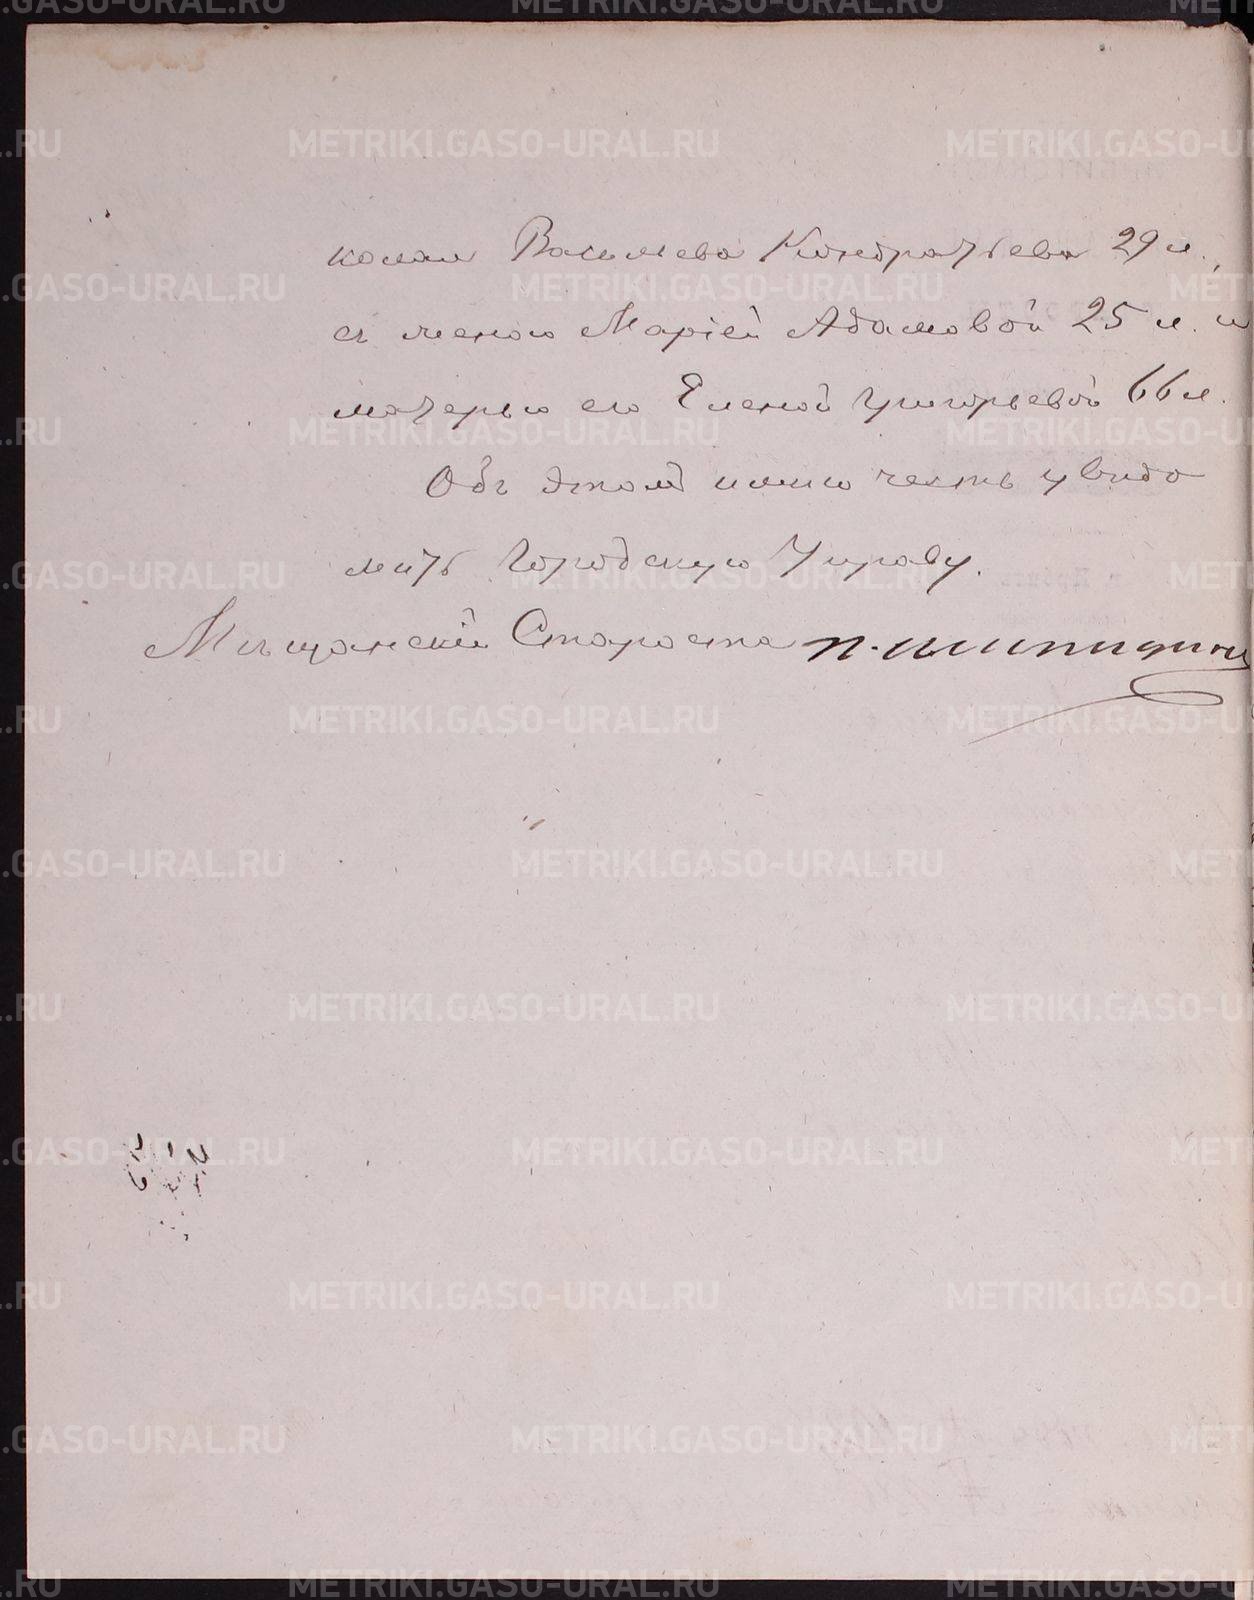 колая Васильева Кондратьева 29 л.,
съ женою Маріей Адамовой 25 л. и
матерью его Еленой Григорьевой 66 л.
Объ этомъ имѣю честь увѣдо
мить Городскую Управу.
Мѣщанскій Староста П.
METRIKI.GASO-URAL.RU